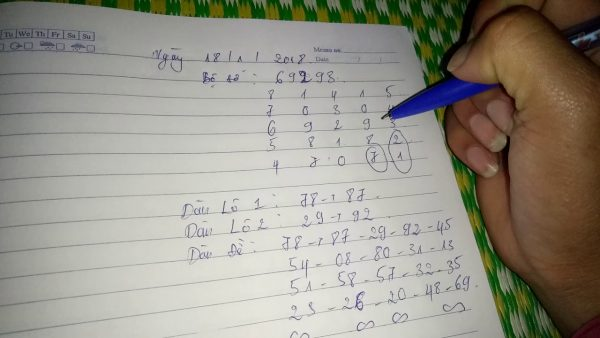 Tu We Th Fr Sa Su
Memo no.
Date / /
Ngày 18 / 1 / 2018.
Bộ số : 69293.
8 1 4 1 5
7 0 3 0 4
6 9 2 9 3
5 8 1 8 2
4 7 0 7 1
Dàn Lô 1 : 78 → 87.
Dàn Lô 2 : 29 → 92
Dàn Đề : 78 → 87 - 29 - 92 - 45
54 - 08 - 80 - 31 - 13
51 - 58 - 57 - 32 - 35
23 - 26 - 20 - 48 - 69.